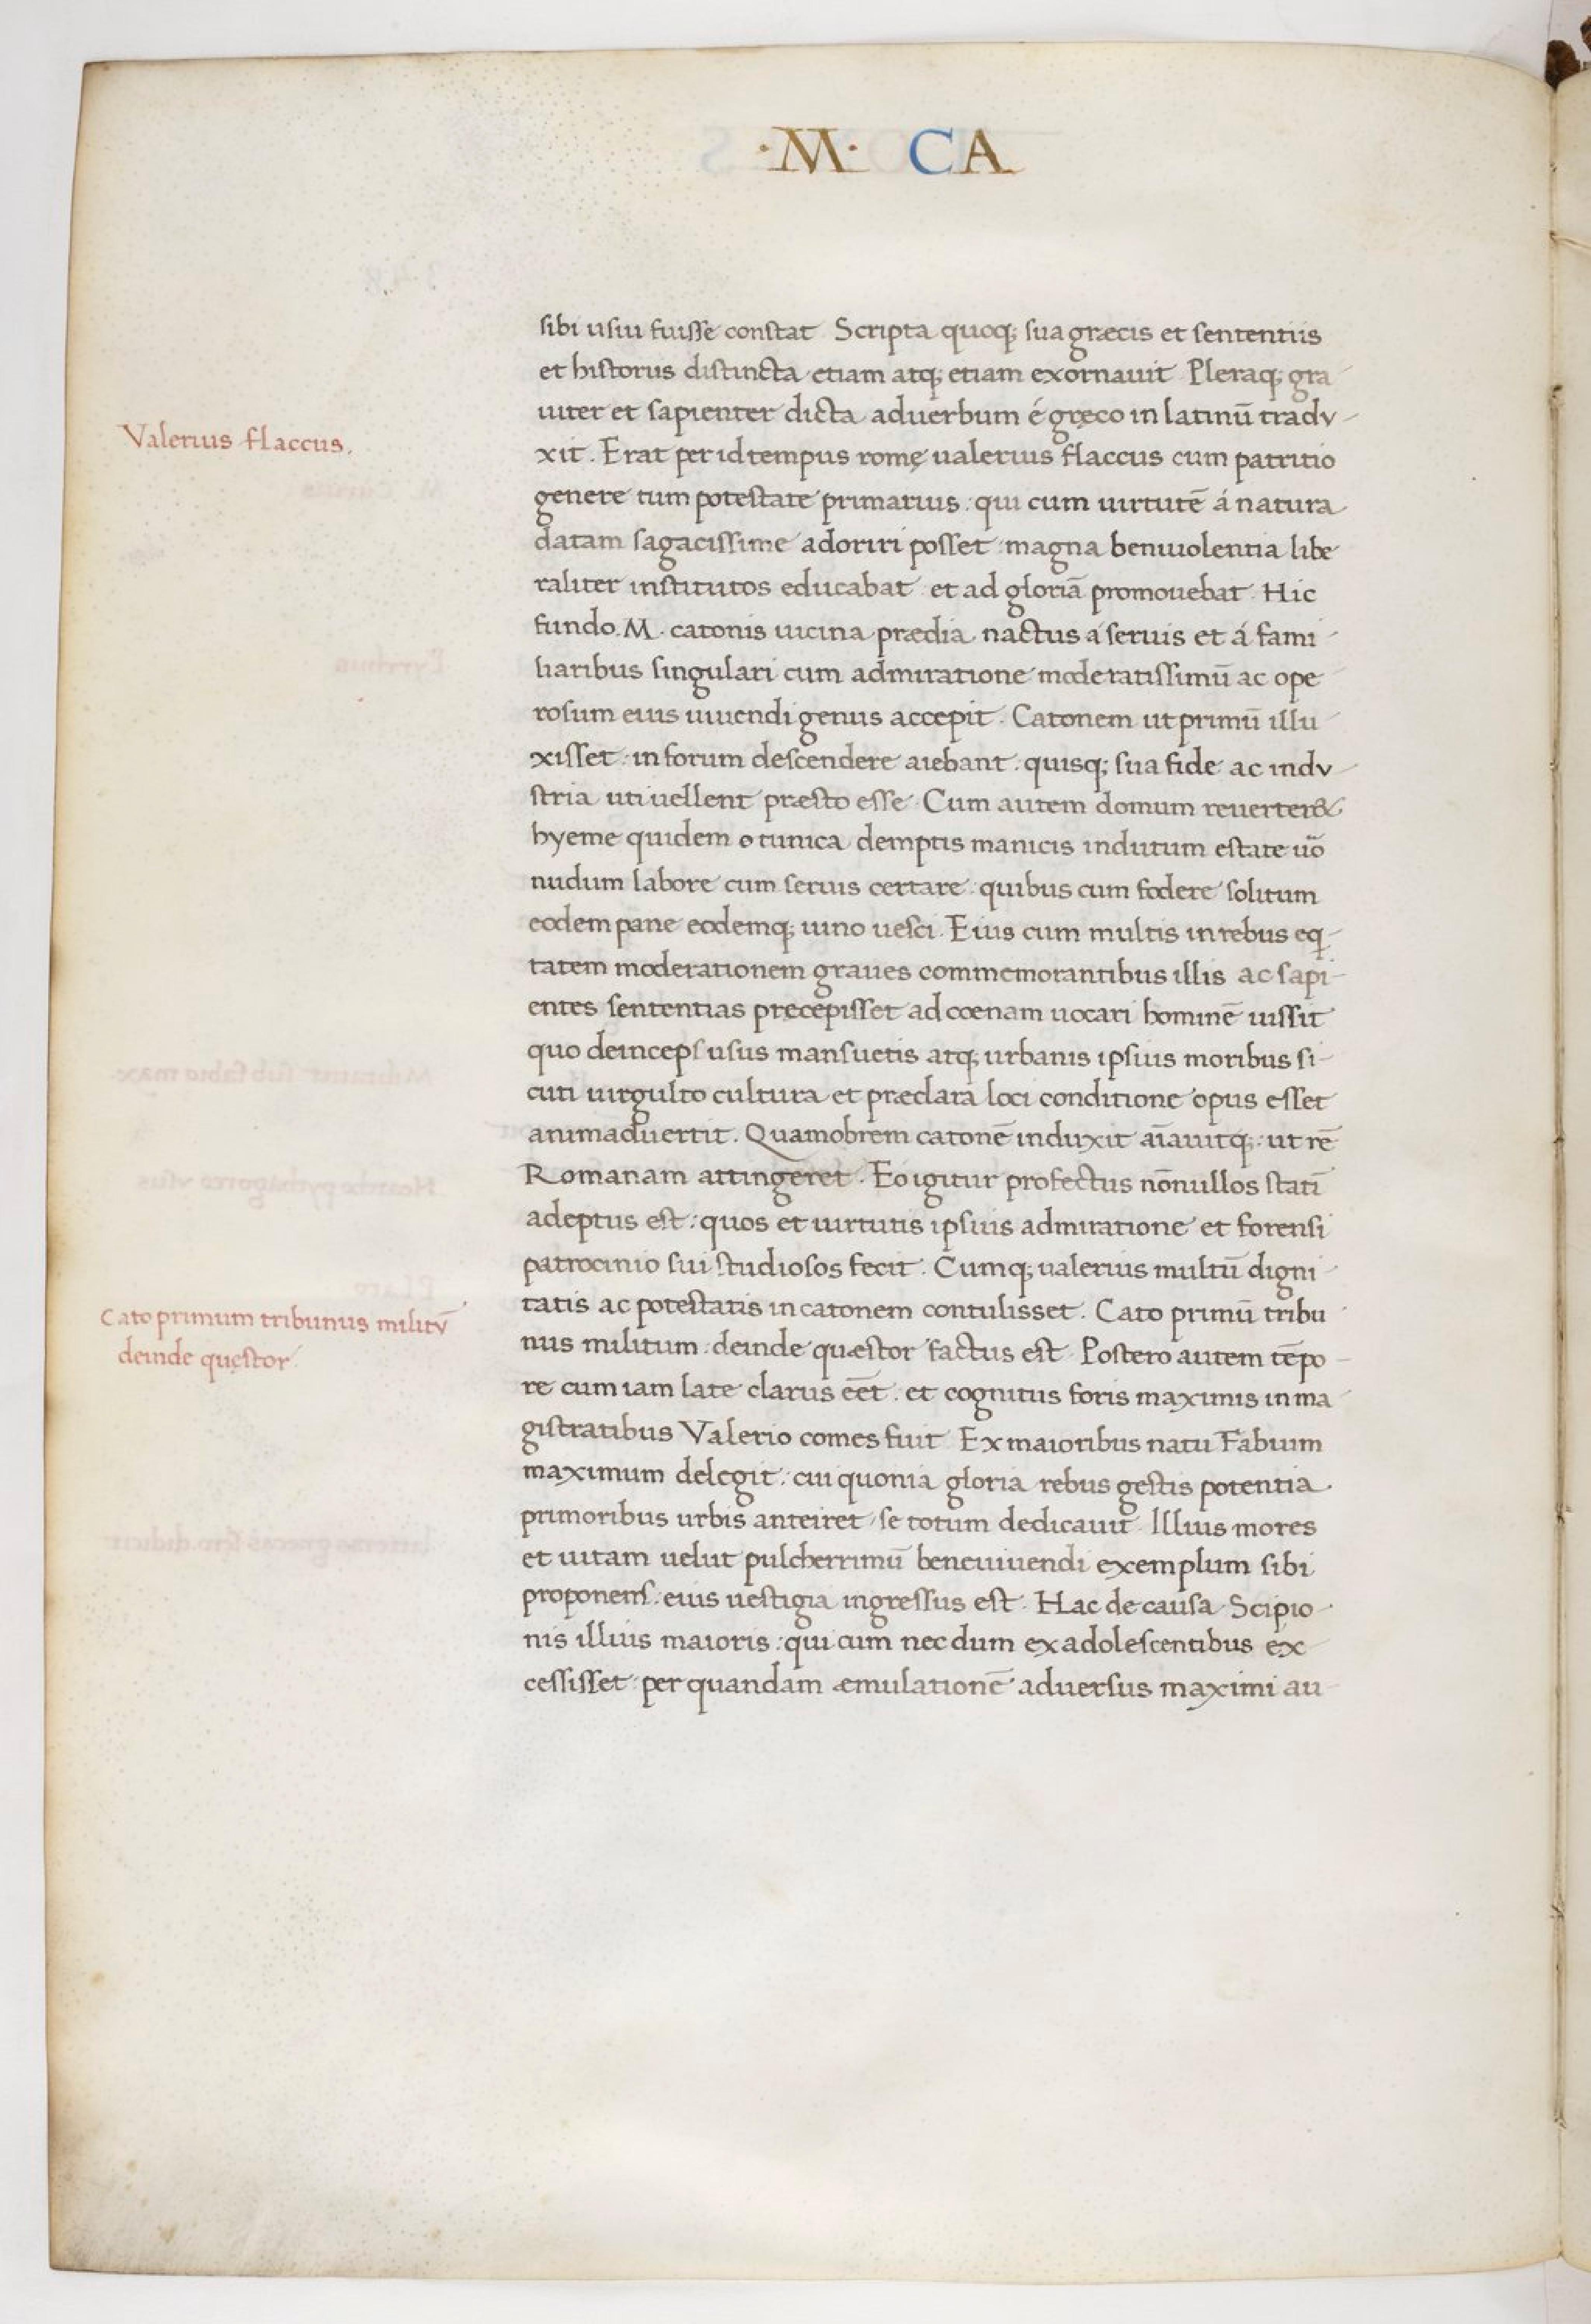 ·M· CA
sibi usui fuisse constat Scripta quoq; sua græcis et sententiis
et historiis distincta etiam atq; etiam exornauit Pleraq; gra
uiter et sapienter dicta aduerbum é gręco in latinū tradv-
Valerius flaccus.
xit. Erat per id tempus romę ualerius flaccus cum patritio
genere tum potestate primarius: qui cum uirtutē á natura
datam sagacissime adoriri posset: magna beniuolentia libe
raliter institutos educabat et ad gloriā promouebat. Hic
fundo.M. catonis uicina prædia nactus a seruis et á fami-
liaribus singulari cum admiratione moderatissimū ac ope
rosum eius uiuendi genus accepit. Catonem ut primū illu-
xisset: in forum descendere aiebant: quisq; sua fide ac indv-
stria uti uellent præsto esse. Cum autem domum reuerter&
hyeme quidem o tunica demptis manicis indutum estate uo̅
nudum labore cum seruis certare: quibus cum fodere solitum
eodem pane eodemq; uino uesci. Eius cum multis in rebus eq-
tatem moderationem graues commemorantibus illis ac sapi-
entes sententias precepisset ad coenam uocari hominē iussit
quo deinceps usus mansuetis atq; urbanis ipsius moribus si-
cuti uirgulto cultura et præclara loci conditione opus esset
animaduertit. Quamobrem catonē induxit aīauitq;: ut rē
Romanam attingeret. Eo igitur profectus nōnullos statī
adeptus est: quos et uirtutis ipsius admiratione et forensi
patrocinio sui studiosos fecit. Cumq; ualerius multū digni-
tatis ac potestatis in catonem contulisset. Cato primū tribu-
Cato primum tribunus militv̄
deinde quęstor.
nus militum: deinde quæstor factus est. Postero autem tēpo-
re cum iam late clarus eēt: et cognitus foris maximis in ma-
gistratibus Valerio comes fuit Ex maioribus natu Fabium
maximum delegit: cui quoniā gloria rebus gestis potentia
primoribus urbis anteiret se totum dedicauit Illius mores
et uitam uelut pulcherrimū beneuiuendi exemplum sibi
proponens: eius uestigia ingressus est. Hac de causa Scipio-
nis illius maioris: qui cum nec dum ex adolescentibus ex-
cessisset per quandam æmulationē aduersus maximi au-